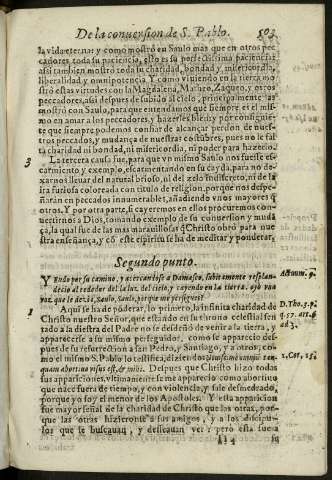 De la conuersion de S. Pablo. 503
la vida eterna: y como mostrò en Saulo mas que en otros pec
cadores toda su paciencia, esto es su perfectissima paciencia:
assi tambien mostrò toda su charidad, bondad y misericordia,
liberalidad y omnipotencia. Y como viuiendo en la tierra mo
strò estas virtudes con la Magdalena, Mateo, Zaqueo, y otros
peccadores, assi despues de subido al cielo, principalmente las
mostrò con Saulo, para que entendamos que siempre es el mis
mo en amar a los peccadores, y hazerles bien: y por consiguiē
te que siempre podemos confiar de alcançar perdon de nues-
tros peccados, y mudança de nuestras costūbres, pues no le fal
ta charidad ni bondad, ni misericordia, ni poder para hazerlo.
3 La tercera causa fue, para que vn mismo Saulo nos fuesse es
carmiento y exemplo, escarmentando en su cayda, para no de-
xarnos lleuar del natural brioso, ni del zelo indiscreto, ni de
la ira furiosa coloreada con titulo de religion, porque nos despe
ñarán en peccados innumerables, añadiendo vnos mayores q̄
otros. Y por otra parte, si cayeremos en ellos procuremos con-
uertirnos a Dios, tomando exemplo de su conuersion y muda
ça, la qual fue de las mas marauillosas q̄ Christo obrò para nue
stra enseñança, y cō este espiritu se ha de meditar y ponderar.
Segundo punto.
Yendo por su camino, y acercandose a Damasco, subitamente resplan-
decio al rededor del la luz del cielo, y cayendo en la tierra, oyò vna
voz que le dezia, Saulo, Saulo, porque me persigues?
Actuum. 9.
1 Aqui se ha de pōderar, lo primero, la infinita charidad de
Christo nuestro Señor, el qual estādo en su trono celestial sen
tado a la diestra del Padre no se desdeñò de venir a la tierra, y
aparecerse a su mismo perseguidor, como se aparecio des-
pues de su resurreccion a san Pedro, y Santiago, y a otros; co-
mo el mismo S. Pablo lo testifica, diziendo:
D. Tho. 3. p.
q. 57. art. 6
ad 3.
1. Cor. 15.
quam abortiuo visus est, & mihi. Despues que Christo hizo todas
sus apariciones, vltimamente se me aparecio como abortiuo
que nace fuera de tiempo, y con violencia, y sale desmedrado,
porque yo soy el menor de los Apostoles. Y esta aparicion
fue mayor señal de la charidad de Christo que las otras, por-
que las otras hizieronse a sus amigos, y a los discipu-
los que le buscauan, y desseauan ver: pero esta fue a
Ii 4 su